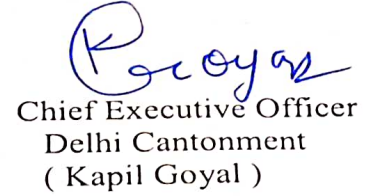 K Goyal
Chief Executive Officer
Delhi Cantonment
( Kapil Goyal )